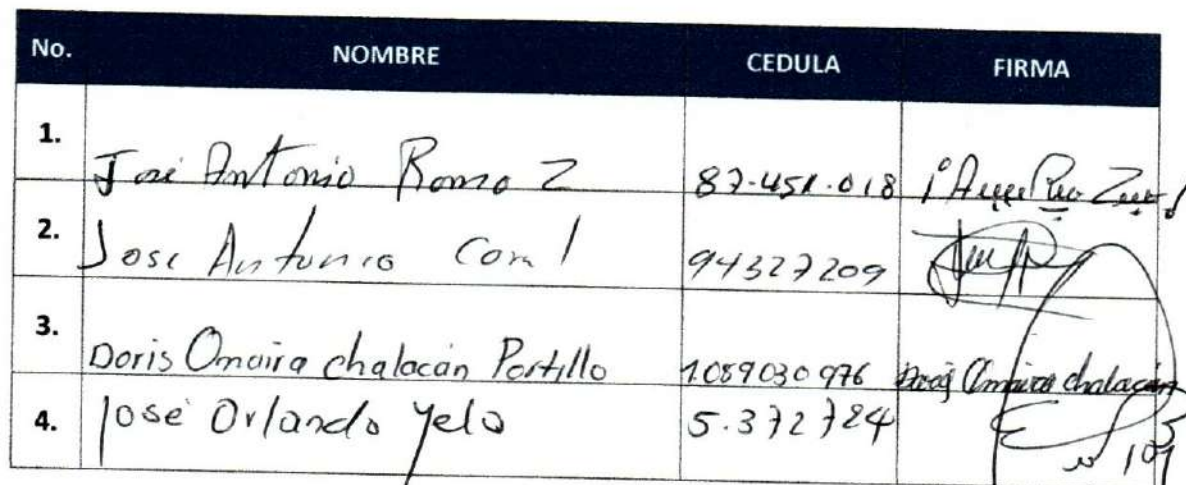 No. NOMBRE CEDULA FIRMA
1. José Antonio Romo Z 87.451.018
2. Jose Antonio 94327209
3. Doris Omaira chalacán Portillo 1089030976 Doris Omaira chalacán
4. José Orlando Yela 5.372724